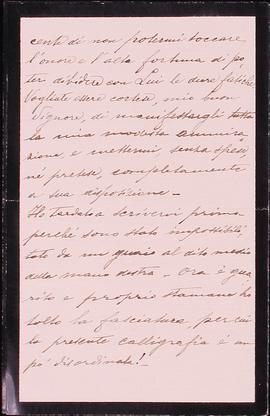 cente di non potermi toccare
l'onore e l'alta fortuna di po=
ter dividere con Lui le dure fatiche.
Vogliate essere cortese, mio buon
Signore, di manifestargli tutta
la mia modesta ammira
zione, e mettermi, senza spese,
nè pretese, completamente
a sua disposizione –
Ho tardato a scrivervi prima
perchè sono stato impossibili
tato da un guaio al dito medio
della mano destra – Ora è gua
rito e proprio stamane ho
tolto la fasciatura, per cui
la presente calligrafia è un
pò disordinata!–